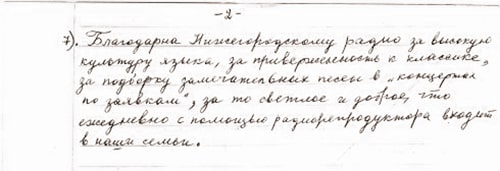 -2-
7). Благодарна Нижегородскому радио за высокую
культуру языка, за приверженность к классике,
за подборку замечательных песен в „концертах
по заявкам", за то светлое и доброе, что
ежедневно с помощью радиорепродуктора входит
в наши семьи.